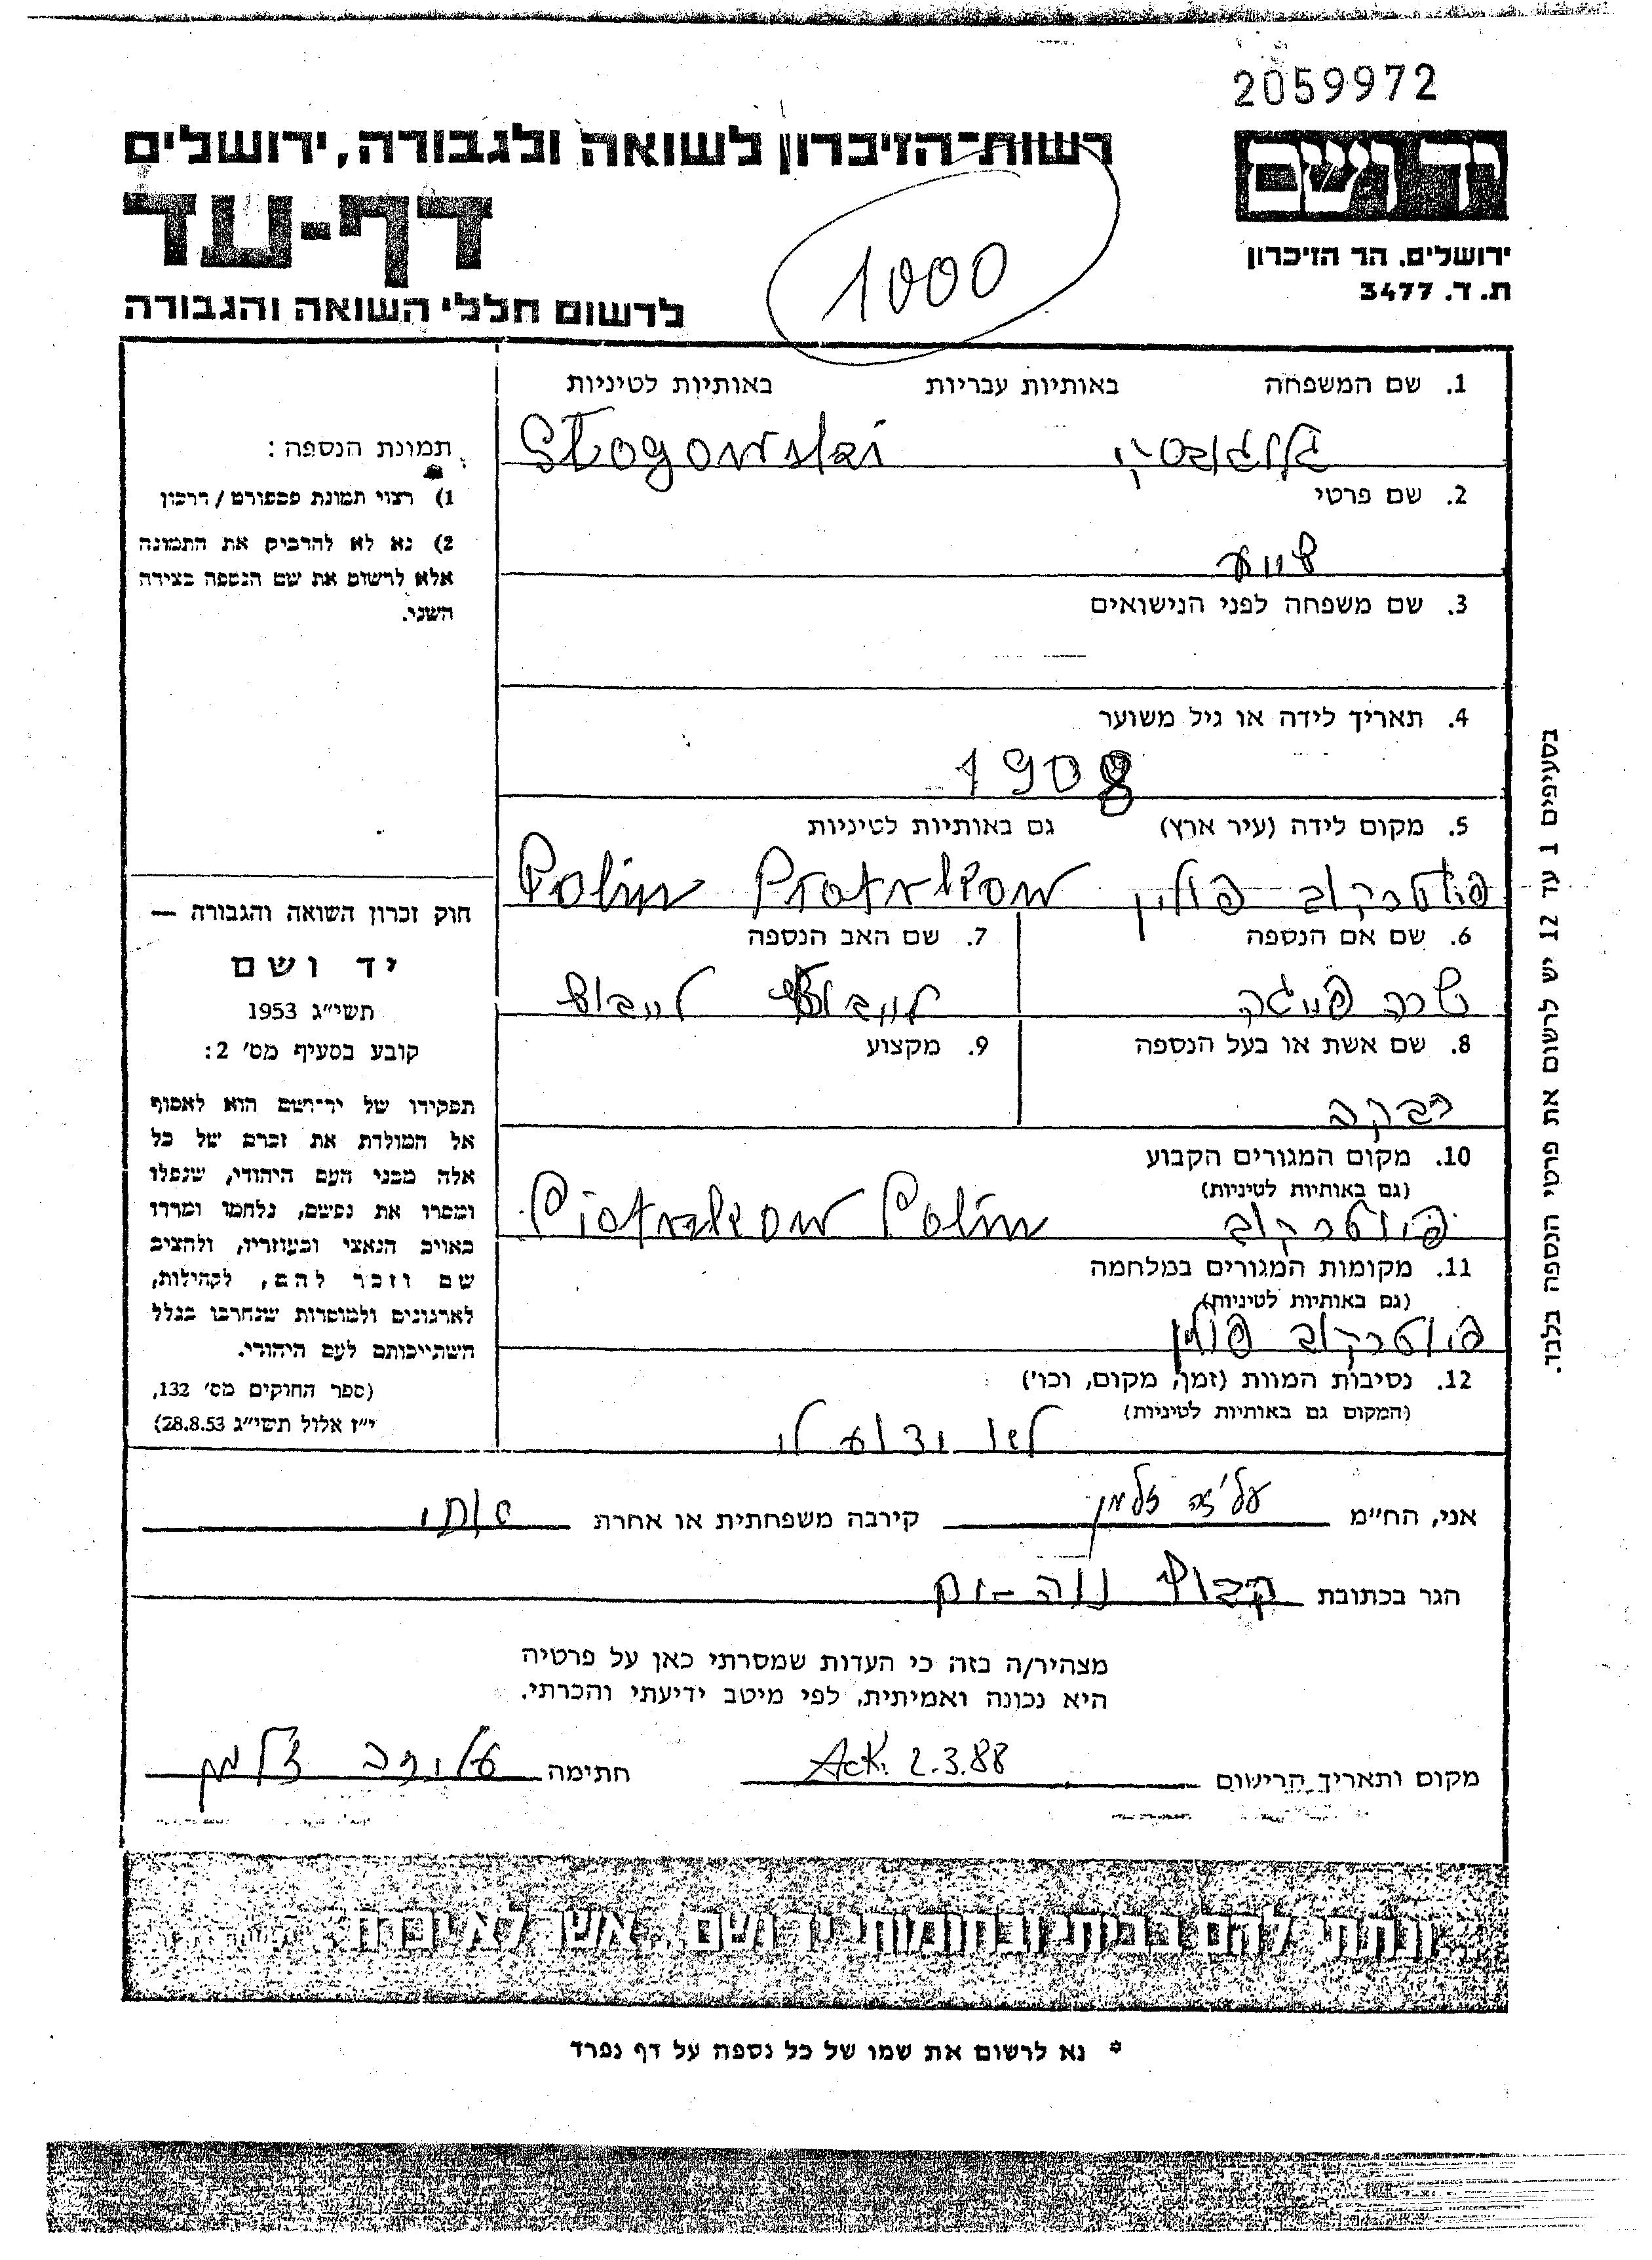 2059972
רשות־הזיכרון לשואה ולגבורה, ירושלים
יד ושם
דף-עד
ירושלים. הר הזיכרון
ת. ד. 3477
לרשום חללי השואה והגבורה
1000
1. שם המשפחה באותיות עבריות באותיות לטיניות
Głogowski
2. שם פרטי
3. שם משפחה לפני הנישואים
4. תאריך לידה או גיל משוער
1908
5. מקום לידה (עיר ארץ) גם באותיות לטיניות
פיוטרקוב פולין Piotrkow Polin
6. שם אם הנספה 7. שם האב הנספה
שרה פייגה לייבוש
8. שם אשת או בעל הנספה 9. מקצוע
רבקה
10. מקום המגורים הקבוע
(גם באותיות לטיניות)
פיוטרקוב Piotrkow Polin
11. מקומות המגורים במלחמה
(גם באותיות לטיניות)
פיוטרקוב פולין
12. נסיבות המוות (זמן, מקום, וכו')
(המקום גם באותיות לטיניות)
לא ידוע לי
תמונת הנספה:
1) רצוי תמונת פספורט / דרכון
2) נא לא להדביק את התמונה
אלא לרשום את שם הנספה בצידה
השני.
חוק זכרון השואה והגבורה —
יד ושם
תשי״ג 1953
קובע בסעיף מס' 2:
תפקידו של יד־ושם הוא לאסוף
אל המולדת את זכרם של כל
אלה מבני העם היהודי, שנפלו
ומסרו את נפשם, נלחמו ומרדו
באויב הנאצי ובעוזריו, ולהציב
שם וזכר להם, לקהילות,
לארגונים ולמוסדות שנחרבו בגלל
השתייכותם לעם היהודי.
(ספר החוקים מס' 132,
י״ז אלול תשי״ג 28.8.53)
בסעיפים 1 עד 12 יש לרשום את פרטי הנספה בלבד.
אני, הח״מ זלמן קירבה משפחתית או אחרת
הגר בכתובת קבוץ נוה-ים
מצהיר/ה בזה כי העדות שמסרתי כאן על פרטיה
היא נכונה ואמיתית, לפי מיטב ידיעתי והכרתי.
מקום ותאריך הרישום Ack. 2.3.88 חתימה זלמן
...ונתתי להם בביתי ובחומותי יד ושם... אשר לא יכרת
* נא לרשום את שמו של כל נספה על דף נפרד